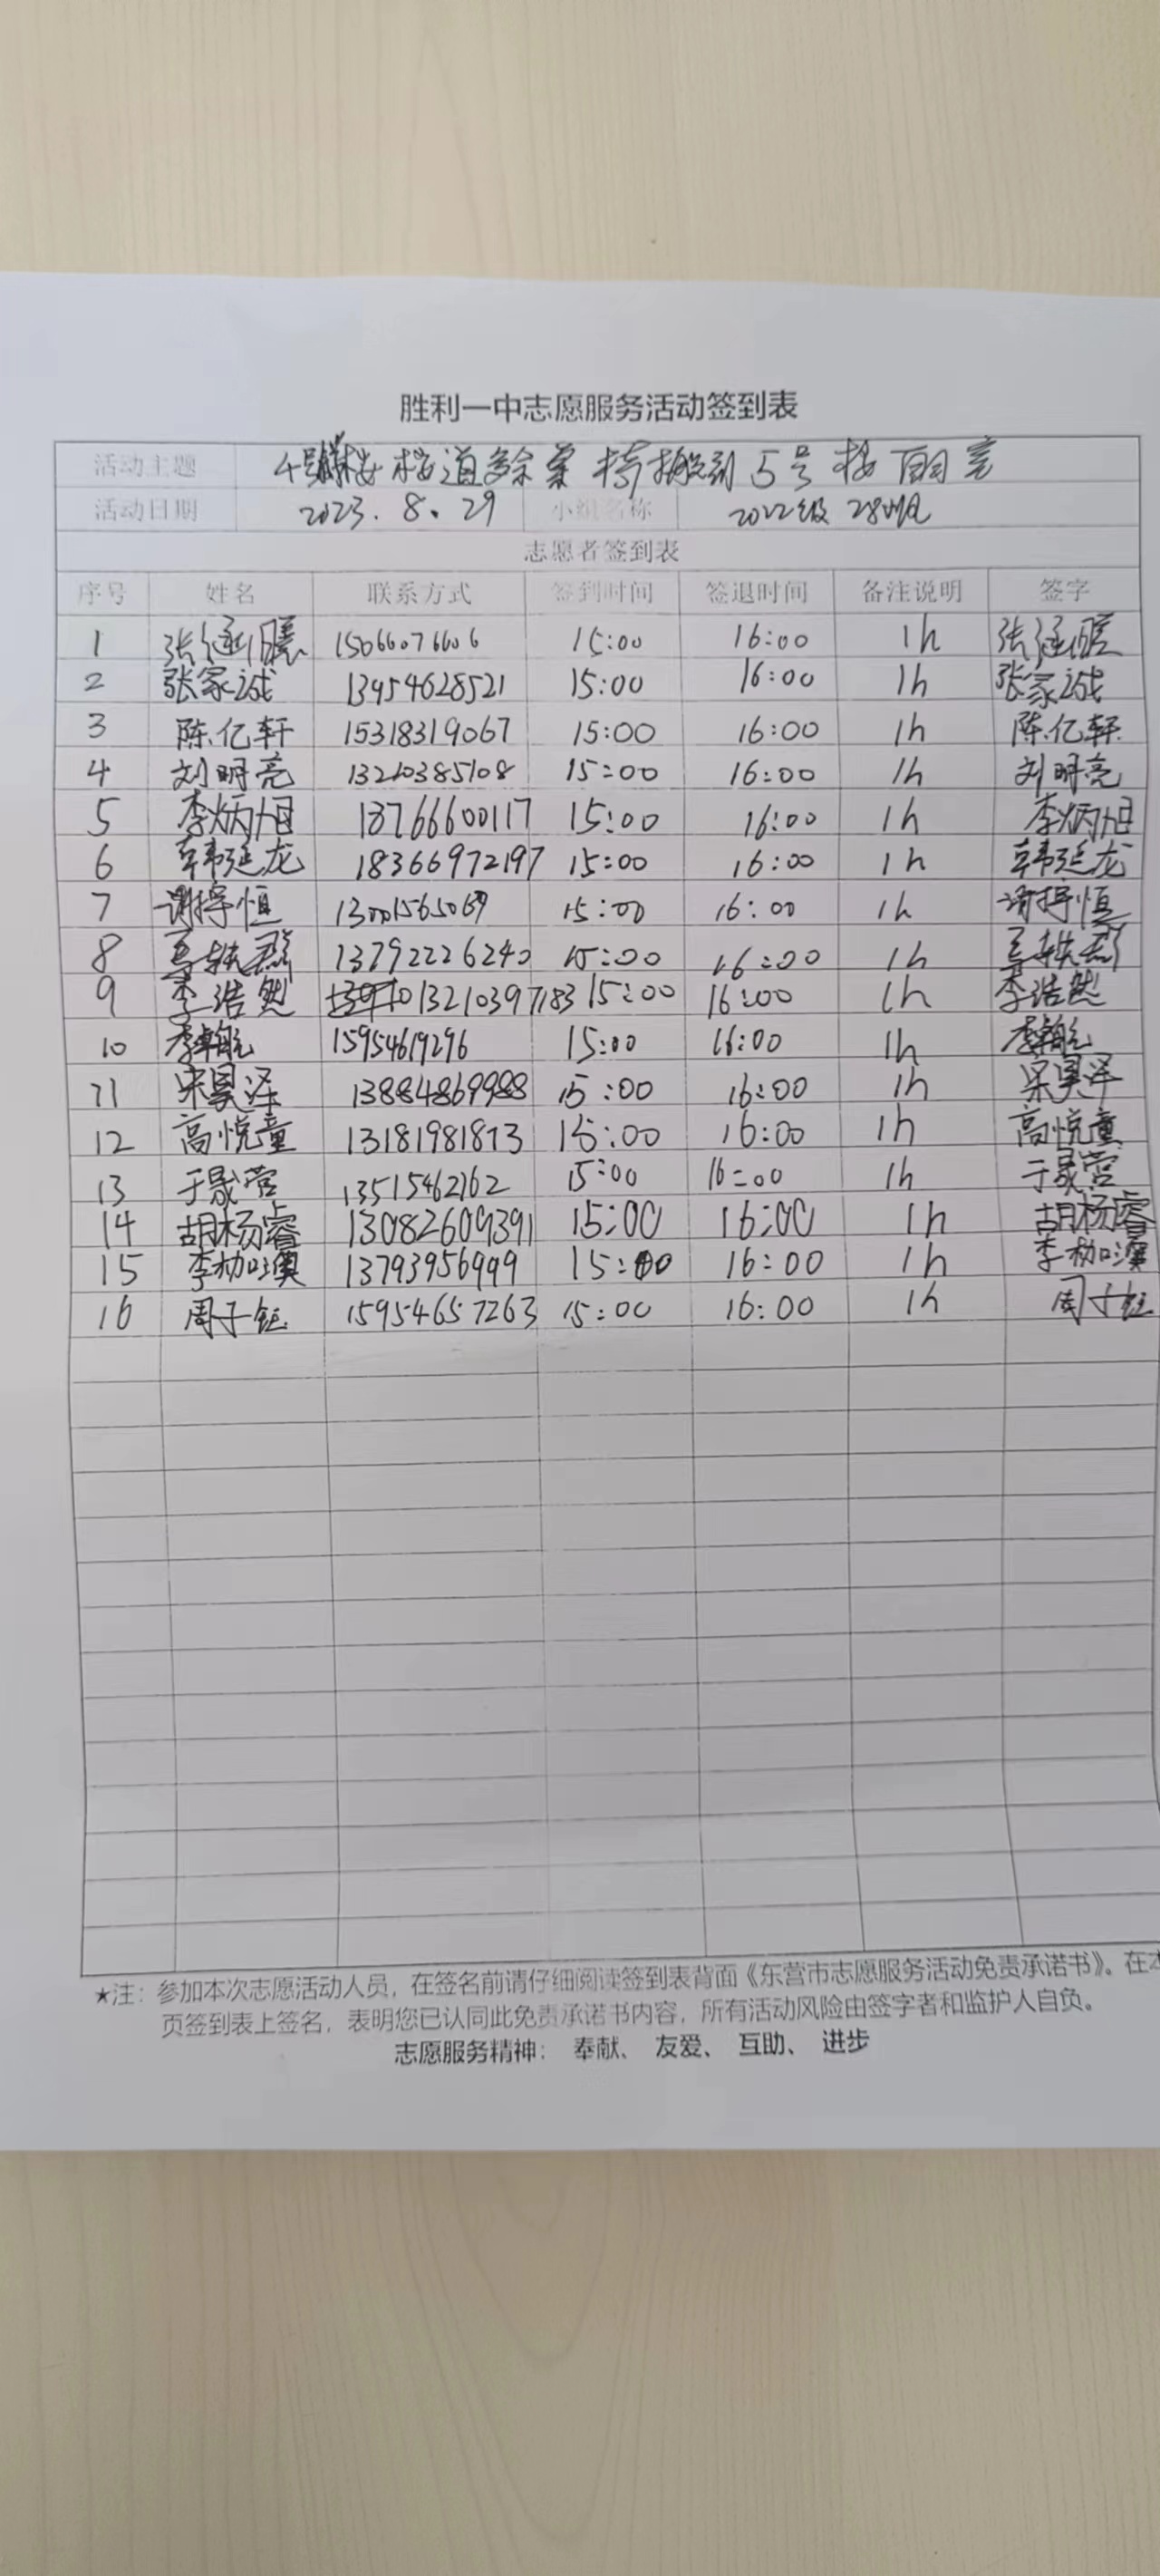 胜利一中志愿服务活动签到表
活动主题 4号楼楼道多余桌椅搬到5号楼
活动日期 2023.8.29 小组名称 2022级 28班
志愿者签到表
序号 姓名 联系方式 签到时间 签退时间 备注说明 签字
1 张 15066076606 15:00 16:00 1h 张
2 张家诚 13954628521 15:00 16:00 1h 张家诚
3 陈亿轩 15318319067 15:00 16:00 1h 陈亿轩
4 刘明亮 13210385108 15:00 16:00 1h 刘明亮
5 李炳旭 18766600117 15:00 16:00 1h 李炳旭
6 韩延龙 18366972197 15:00 16:00 1h 韩延龙
7 谢 恒 13001565069 15:00 16:00 1h 谢 恒
8 13792226240 15:00 16:00 1h
9 李浩然 13210397183 15:00 16:00 1h 李浩然
10 李翰 15954619296 15:00 16:00 1h 李翰
11 宋昊泽 13884869988 15:00 16:00 1h 宋昊泽
12 高悦童 13181981813 15:00 16:00 1h 高悦童
13 于晟营 13515462162 15:00 16:00 1h 于晟营
14 胡杨睿 13082609391 15:00 16:00 1h 胡杨睿
15 李 澳 13793956999 15:00 16:00 1h 李 澳
16 周子钰 15954657263 15:00 16:00 1h 周子钰
★注：参加本次志愿活动人员，在签名前请仔细阅读签到表背面《东营市志愿服务活动免责承诺书》。在本
页签到表上签名，表明您已认同此免责承诺书内容，所有活动风险由签字者和监护人自负。
志愿服务精神： 奉献、 友爱、 互助、 进步